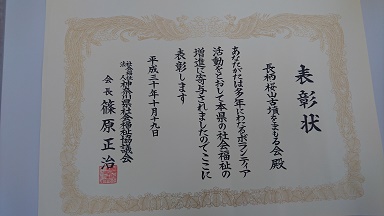 表彰状
長柄桜山古墳をまもる会 殿
あなたがたは多年にわたるボランティア
活動をとおして本県の社会福祉の
増進に寄与されましたのでここに
表彰します
平成三十年十月十九日
社会福祉法人神奈川県社会福祉協議会
会長 篠原正治